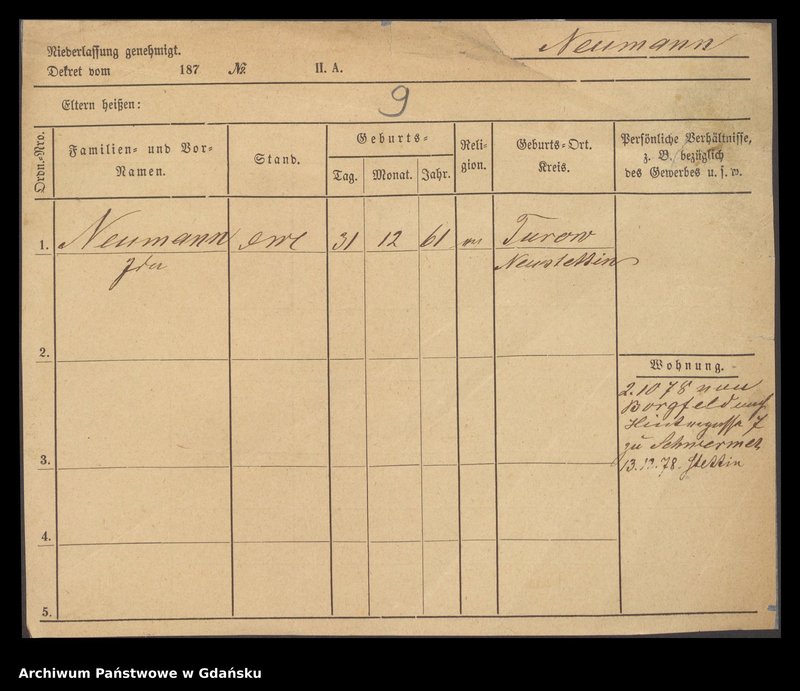 Neumann
Niederlassung genehmigt.
Dekret vom 187 № II. A.
Eltern heißen:
9
Ordn.-Nro.
Familien- und Vor-
Namen.
Stand.
Geburts-
Tag. Monat. Jahr.
Reli-
gion.
Geburts-Ort.
Kreis.
Persönliche Verhältnisse,
z. B. bezüglich
des Gewerbes u. s. w.
1. Neumann 31 12 61 Turow
Ida Neustettin
2.
Wohnung.
2.10 78 von
Borgfeld nach
Hintergasse 7
zu Schwermer
13.12.78. Stettin
3.
4.
5.
Archiwum Państwowe w Gdańsku